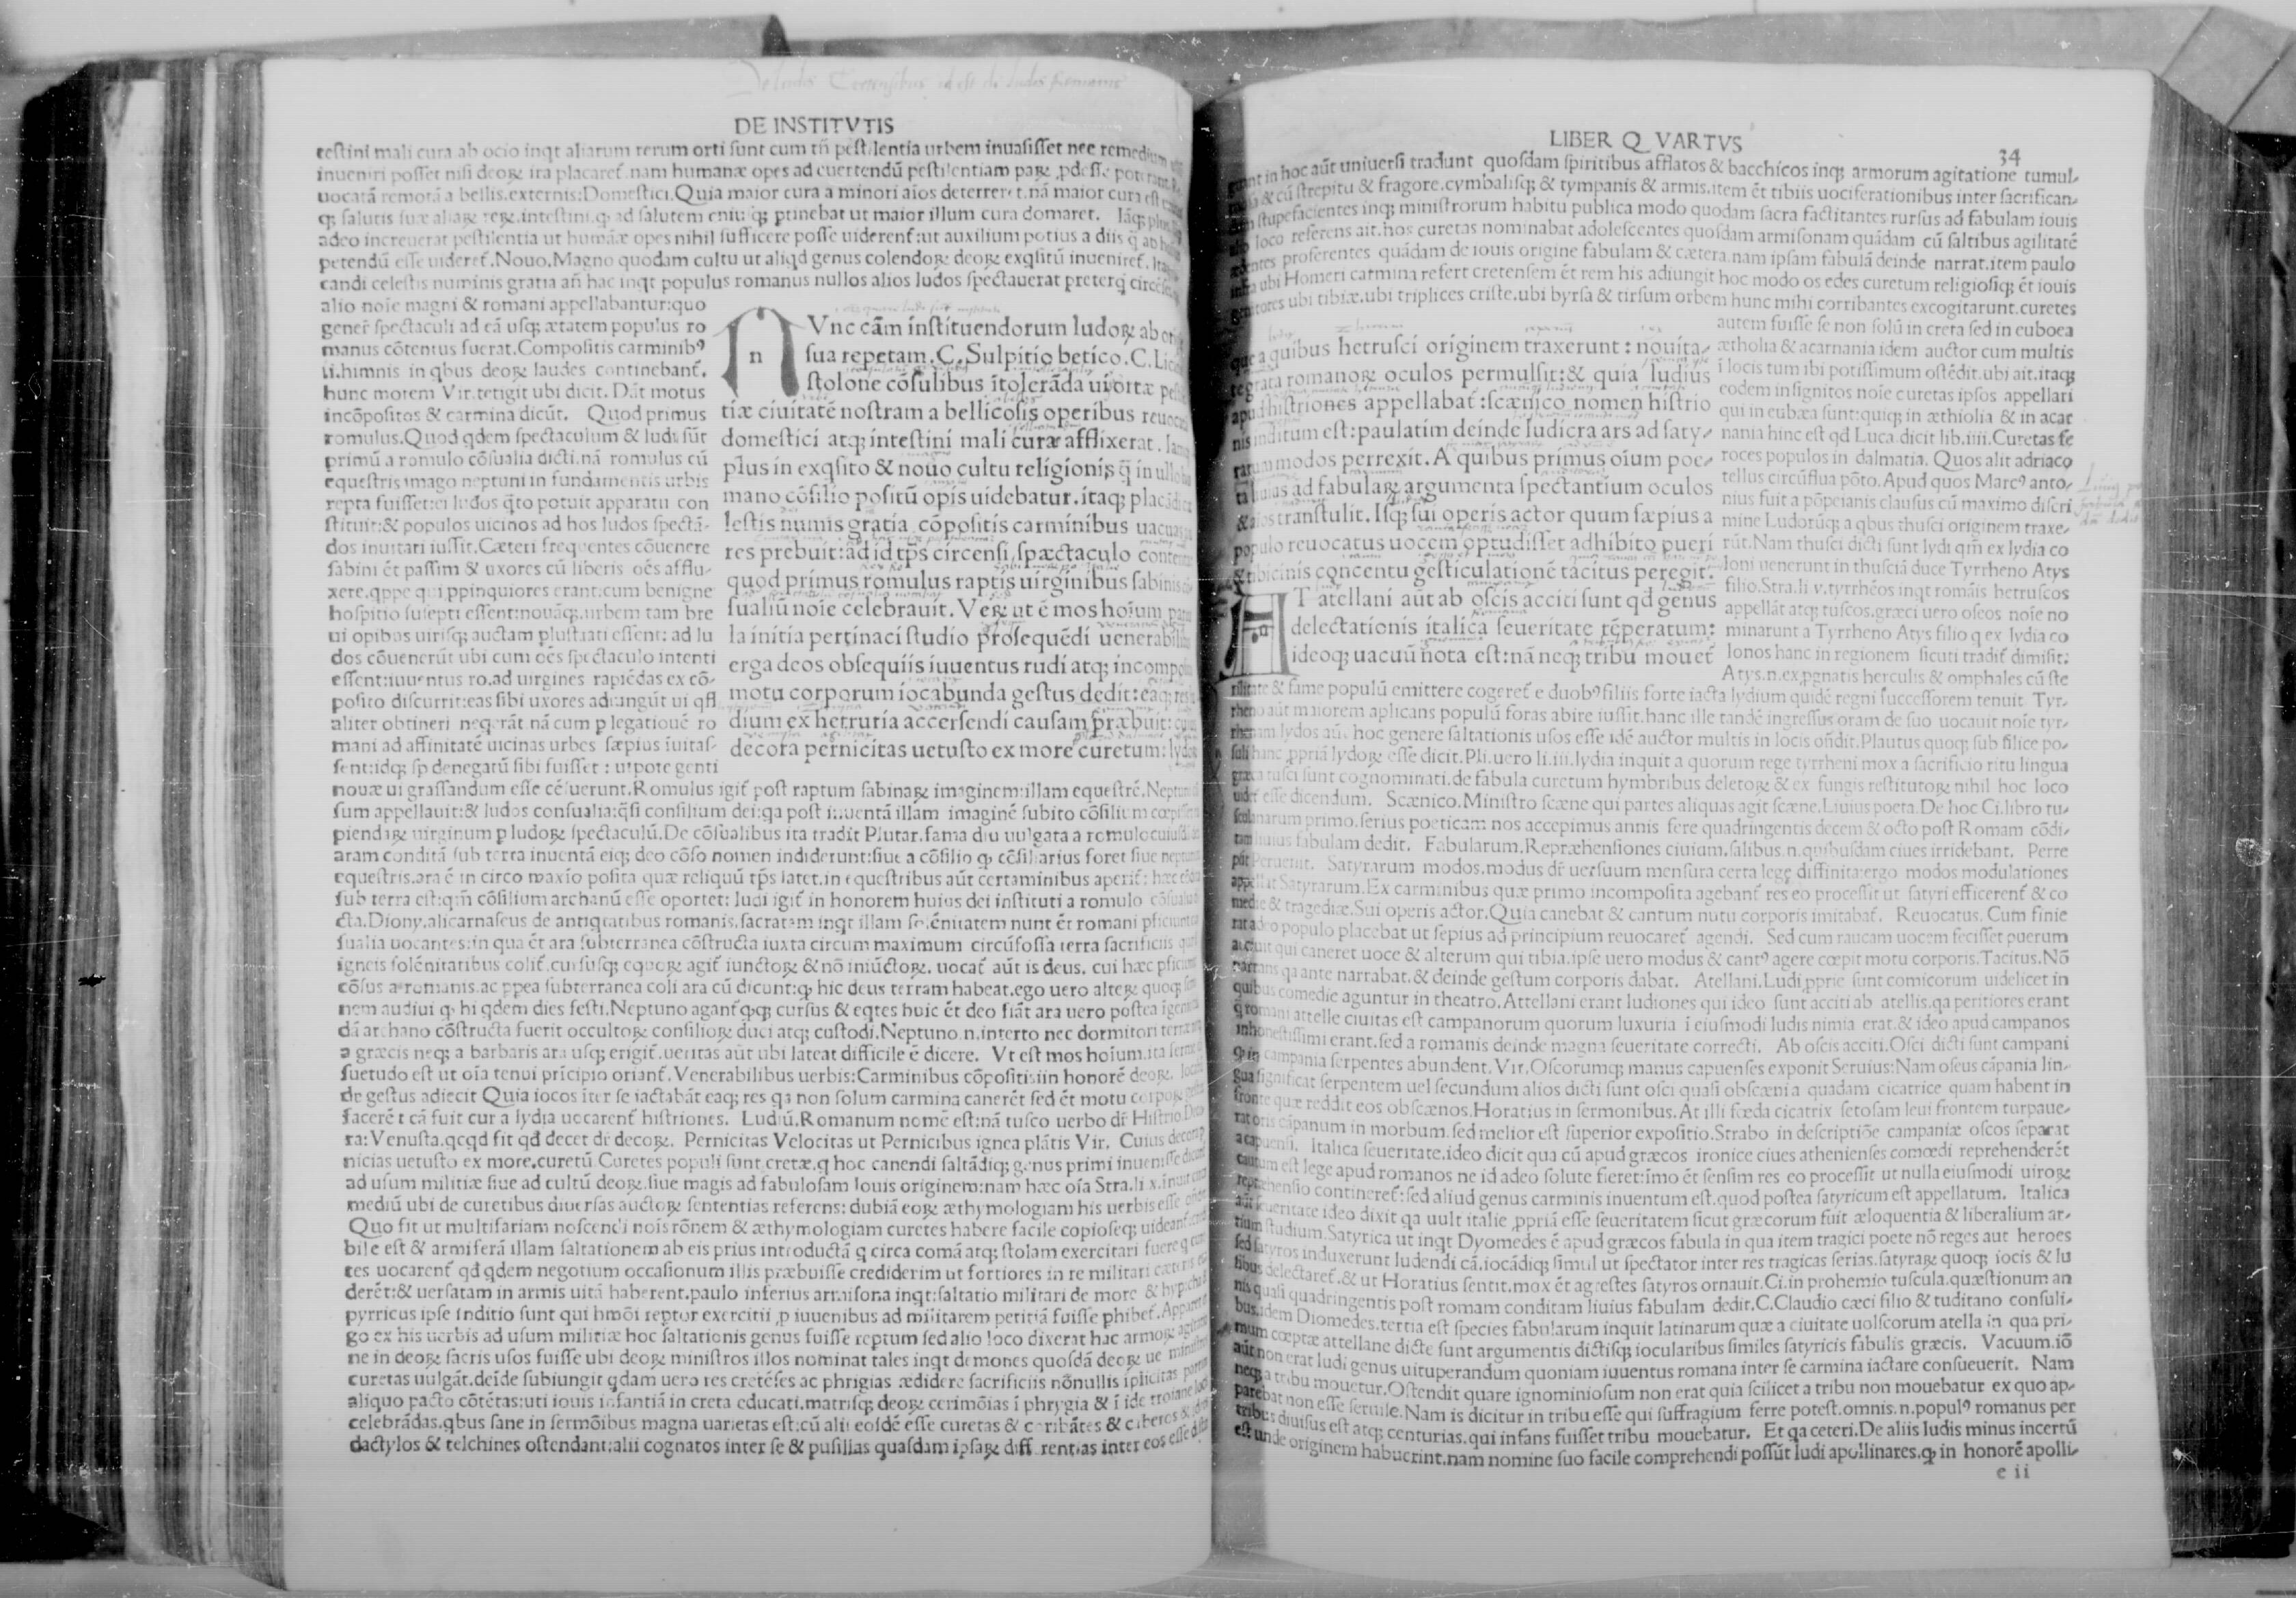 DE INSTITVTIS
teſtini mali cura ab ocio inqt aliarum rerum orti ſunt cum tñ peſtilentia urbem inuaſiſſet nec remedium
inueniri poſſet niſi deoꝝ ira placaret̃.nam humanæ opes ad euertendū peſtilentiam paꝝ ꝓdeſſe poterant
uocatā remotā a bellis.externis:Domeſtici.Quia maior cura a minori aīos deterreret.nā maior cura eſt
adeo increuerat peſtilentia ut humāæ opes nihil ſufficere poſſe uiderent̃:ut auxilium potius a diis q̄ ab
petendū eſſe uideret̃.Nouo.Magno quodam cultu ut aliqd genus colendoꝝ deoꝝ exqſitū inueniret̃.
candi celeſtis numinis gratia añ hac inqt populus romanus nullos alios ludos ſpectauerat preterq̄
alio noīe magni & romani appellabantur:quo
gener̃ ſpectaculi ad eā uſqꝫ ætatem populus ro
manus cōtentus fuerat.Compoſitis carminibꝰ
i.i.himnis in qbus deoꝝ laudes continebant̃.
hunc morem Vir.tetigit ubi dicit. Dāt motus
incōpoſitos & carmina dicūt. Quod primus
romulus.Quod qdem ſpectaculum & ludi ſūt
primū a romulo cōſualia dicti.nā romulus cū
equeſtris imago neptuni in fundamentis urbis
repta fuiſſet:ei ludos q̄to potuit apparatu con
ſtituit:& populos uicinos ad hos ludos ſpectā-
dos inuitari iuſſit.Cæteri frequentes cōuenere
ſabini ēt paſſim & uxores cū liberis oēs afflu-
xere.qppe qui ꝓpinquiores erant.cum benigne
hoſpitio ſuſepti eſſent:nouāqꝫ.urbem tam bre
ui opibus uiriſqꝫ auctam pluſtrati eſſent: ad lu
dos cōuenerūt ubi cum oēs ſpectaculo intenti
eſſent:iuuentus ro.ad uirgines rapiēdas ex cō-
poſito diſcurrit:eas ſibi uxores adiungūt ui qſi
aliter obtineri neqrāt.nā cum p legationē ro
mani ad affinitatē uicinas urbes ſæpius īuitaſ-
ſent:idqꝫ ſp denegatū ſibi fuiſſet : utpote genti
n
Vnc cām inſtituendorum ludoꝝ ab
ſua repetam.C.Sulpitio betico.C.
ſtolone cōſulibus ītolerāda ui ortæ
tiæ ciuitatē noſtram a bellicoſis operibus
domeſtici atqꝫ inteſtini mali curæ afflixerat.
plus in exqſito & nouo cultu religionis q̄ in ullo
mano cōſilio poſitū opis uidebatur.itaqꝫ
leſtis numis gratia cōpoſitis carminibus
res prebuit:ad id tp̄s circenſi ſpæctaculo
quod primus romulus raptis uirginibus ſabinis
ſualiū noīe celebrauit. Veꝝ ut ē mos hoīum
la initia pertinaci ſtudio proſequēdi
erga deos obſequiis iuuentus rudi atqꝫ
motu corporum iocabunda geſtus dedit:
dium ex hetruria accerſendi cauſam præbuit:
decora pernicitas uetuſto ex more curetum:
nouæ ui graſſandum eſſe cēſuerunt.Romulus igit̃ poſt raptum ſabinaꝝ imaginem illam equeſtrē.
ſum appellauit:& ludos conſualia:q̄ſi conſilium dei:qa poſt inuentā illam imaginē ſubito cōſilium
piendaꝝ uirginum p ludoꝝ ſpectaculū.De cōſualibus ita tradit Plutar.fama diu uulgata a romulo
aram conditā ſub terra inuentā eiqꝫ deo cōſo nomen indiderunt:ſiue a cōſilio ꝙ cōſiliarius foret ſiue
equeſtris.ara ē in circo maxīo poſita quæ reliquū tp̄s latet.in equeſtribus aūt certaminibus aperit̃:
ſub terra eſt:qm̄ cōſilium archanū eſſe oportet: ludi igit̃ in honorem huius dei inſtituti a romulo
cta.Diony.alicarnaſeus de antiqtatibus romanis.ſacratam inqt illam ſolēnitatem nunc ēt romani
ſualia uocantes:in qua ēt ara ſubterranea cōſtructa iuxta circum maximum circūfoſſa terra ſacrificiis
igneis ſolēnitatibus colit̃.curſuſqꝫ equoꝝ agit̃ iunctoꝝ & nō iniūctoꝝ. uocat̃ aūt is deus. cui hæc
cōſus a romanis.ac ꝓpea ſubterranea coli ara cū dicunt:ꝙ hic deus terram habeat.ego uero alteꝝ quoqꝫ
nem audiui ꝙ hi qdem dies feſti.Neptuno agant̃ ꝙqꝫ curſus & eqtes huic ēt deo fiāt ara uero poſtea
dā archano cōſtructa fuerit occultoꝝ conſilioꝝ duci atqꝫ cuſtodi.Neptuno.n.interto nec dormitori
a græcis neqꝫ a barbaris ara uſqꝫ erigit̃.ueritas aūt ubi lateat difficile ē dicere. Vt eſt mos hoīum.ita
ſuetudo eſt ut oīa tenui prīcipio oriant̃.Venerabilibus uerbis:Carminibus cōpoſitis in honorē deoꝝ.
de geſtus adiecit Quia iocos iter ſe iactabāt eaqꝫ res qa non ſolum carmina canerēt ſed ēt motu
facerēt cā fuit cur a lydia uocarent̃ hiſtriones. Ludiū.Romanum nomē eſt:nā tuſco uerbo dr̄ Hiſtrio.
ra:Venuſta.qcqd fit qd̃ decet di decoꝝ. Pernicitas Velocitas ut Pernicibus ignea plātis Vir. Cuius
nicias uetuſto ex more.curetū Curetes populi ſunt cretæ.q hoc canendi ſaltādiqꝫ genus primi
ad uſum militiæ ſiue ad cultū deoꝝ.ſiue magis ad fabuloſam Iouis originem:nam hæc oīa Stra.li x.
mediū ubi de curetibus diuerſas auctoꝝ ſententias referens: dubiā eoꝝ æthymologiam his uerbis eſſe
Quo fit ut multifariam noſcendi nois rōnem & æthymologiam curetes habere facile copioſeqꝫ
bile eſt & armiferā illam ſaltationem ab eis prius introductā q circa comā atqꝫ ſtolam exercitari fuere
tes uocarent̃ qd̃ qdem negotium occaſionum illis præbuiſſe crediderim ut fortiores in re militari
derēt:& uerſatam in armis uitā haberent.paulo inferius armiſona inqt:ſaltatio militari de more
pyrricus ipſe inditio ſunt qui hmōi reptor exercitii ꝓ iuuenibus ad militarem peritiā fuiſſe
go ex his uerbis ad uſum militiæ hoc ſaltationis genus fuiſſe reptum ſed alio loco dixerat hac armoꝝ
ne in deoꝝ ſacris uſos fuiſſe ubi deoꝝ miniſtros illos nominat tales inqt demones quoſdā deoꝝ
curetas uulgāt.deīde ſubiungit qdam uero res cretēſes ac phrigias ædidere ſacrificiis nōnullis
aliquo pacto cōtētas:uti iouis infantiā in creta educati.matriſqꝫ deoꝝ cerimōias ī phrygia & ī ide
celebrādas.qbus ſane in ſermōibus magna uarietas eſt:cū alii eoſdē eſſe curetas & coribātes &
dactylos & telchines oſtendant:alii cognatos inter ſe & puſillas quaſdam ipſaꝝ differentias inter eos eſſe
LIBER Q VARTVS
34
in hoc aūt uniuerſi tradunt quoſdam ſpiritibus afflatos & bacchicos inqꝫ armorum agitatione tumul-
& cū ſtrepitu & fragore.cymbaliſqꝫ & tympanis & armis.item ēt tibiis uociferationibus inter ſacrifican-
ſtupefacientes inqꝫ miniſtrorum habitu publica modo quodam ſacra factitantes rurſus ad fabulam iouis
loco referens ait.hos curetas nominabat adoleſcentes quoſdam armiſonam quādam cū ſaltibus agilitatē
proferentes quādam de iouis origine fabulam & cætera.nam ipſam fabulā deinde narrat.item paulo
ubi Homeri carmina refert cretenſem ēt rem his adiungit hoc modo os edes curetum religioſiqꝫ ēt iouis
ubi tibiæ.ubi triplices criſte.ubi byrſa & tirſum orbem hunc mihi corribantes excogitarunt.curetes
autem fuiſſe ſe non ſolū in creta ſed in euboea
ætholia & acarnania idem auctor cum multis
ī locis tum ibi potiſſimum oſtēdit.ubi ait.itaqꝫ
eodem inſignitos noīe curetas ipſos appellari
qui in eubæa ſunt:quiqꝫ in æthiolia & in acar
nania hinc eſt qd Luca.dicit lib.iiii.Curetas fe
roces populos in dalmatia. Quos alit adriaco
tellus circūflua pōto.Apud quos Marcꝰ anto-
nius fuit a pōpeianis clauſus cū maximo diſcri
mine Ludorūqꝫ a qbus thuſci originem traxe-
rūt.Nam thuſci dicti ſunt lydi qm̄ ex lydia co
loni uenerunt in thuſciā duce Tyrrheno Atys
filio.Stra.li v.tyrrhēos inqt romāis hetruſcos
appellāt atqꝫ tuſcos.græci uero oſcos noīe no
minarunt a Tyrrheno Atys filio q ex lydia co
lonos hanc in regionem ſicuti tradit̃ dimiſit:
Atys.n.ex ꝓgnatis herculis & omphales cū ſte
a quibus hetruſci originem traxerunt : nouita-
te grata romanoꝝ oculos permulſit:& quia ludius
apud hiſtriones appellabat̃ :ſcænico nomen hiſtrio
nis inditum eſt:paulatim deinde ludicra ars ad ſaty-
modos perrexit. A quibus primus oīum poe-
ad fabulaꝝ argumenta ſpectantium oculos
tranſtulit. Iſqꝫ ſui operis actor quum ſæpius a
populo reuocatus uocem optudiſſet adhibito pueri
& tibicinis concentu geſticulationē tacitus peregit.
T atellani aūt ab oſcis acciti ſunt qd̃ genus
delectationis italica ſeueritate tēperatum:
ideoqꝫ uacuū nota eſt:nā neqꝫ tribu mouet̃
& fame populū emittere cogeret̃ e duobꝰ filiis forte iacta lydium quidē regni ſucceſſorem tenuit Tyr-
aūt maiorem aplicans populū foras abire iuſſit.hanc ille tandē ingreſſus oram de ſuo uocauit noīe tyr-
lydos aūt hoc genere ſaltationis uſos eſſe idē auctor multis in locis oñdit.Plautus quoqꝫ ſub filice po-
hanc ꝓpriā lydoꝝ eſſe dicit.Pli.uero li.iii.lydia inquit a quorum rege tyrrheni mox a ſacrificio ritu lingua
tuſci ſunt cognominati.de fabula curetum hymbribus deletoꝝ & ex fungis reſtitutoꝝ nihil hoc loco
eſſe dicendum. Scænico.Miniſtro ſcæne qui partes aliquas agit ſcæne.Liuius poeta.De hoc Ci.libro tu-
primo.ſerius poeticam nos accepimus annis fere quadringentis decem & octo poſt Romam cōdi-
huius fabulam dedit. Fabularum.Repræhenſiones ciuium.ſalibus.n.quibuſdam ciues irridebant. Perre
Peruenit. Satyrarum modos.modus dr̄ uerſuum menſura certa lege diffinita:ergo modos modulationes
Satyrarum.Ex carminibus quæ primo incompoſita agebant̃ res eo proceſſit ut ſatyri efficerent̃ & co
& tragediæ.Sui operis actor.Quia canebat & cantum nutu corporis imitabat̃. Reuocatus. Cum finie
populo placebat ut ſepius ad principium reuocaret̃ agendi. Sed cum raucam uocem feciſſet puerum
qui caneret uoce & alterum qui tibia.ipſe uero modus & cantꝰ agere cœpit motu corporis.Tacitus.Nō
qa ante narrabat.& deinde geſtum corporis dabat. Atellani.Ludi ꝓprie ſunt comicorum uidelicet in
quibus comedie aguntur in theatro.Attellani erant ludiones qui ideo ſunt acciti ab atellis.qa peritiores erant
q̄ romani attelle ciuitas eſt campanorum quorum luxuria ī eiuſmodi ludis nimia erat.& ideo apud campanos
inhoneſtiſſimi erant.ſed a romanis deinde magna ſeueritate correcti. Ab oſcis acciti.Oſci dicti ſunt campani
ꝙ in campania ſerpentes abundent.Vir.Oſcorumqꝫ manus capuenſes exponit Seruius:Nam oſcus cāpania lin-
gua ſignificat ſerpentem uel ſecundum alios dicti ſunt oſci quaſi obſcæni a quadam cicatrice quam habent in
fronte quæ reddit eos obſcænos.Horatius in ſermonibus.At illi fœda cicatrix ſetoſam leui frontem turpaue-
rat oris cāpanum in morbum.ſed melior eſt ſuperior expoſitio.Strabo in deſcriptiōe campaniæ oſcos ſeparat
a capuenſi. Italica ſeueritate.ideo dicit qua cū apud græcos ironice ciues athenienſes comœdi reprehenderēt
cautum eſt lege apud romanos ne id adeo ſolute fieret:imo ēt ſenſim res eo proceſſit ut nulla eiuſmodi uiroꝝ
repræhenſio contineret̃:ſed aliud genus carminis inuentum eſt.quod poſtea ſatyricum eſt appellatum. Italica
aūt ſeueritate ideo dixit qa uult italie ꝓpriā eſſe ſeueritatem ſicut græcorum fuit æloquentia & liberalium ar-
tium ſtudium.Satyrica ut inqt Dyomedes ē apud græcos fabula in qua item tragici poete nō reges aut heroes
ſed ſatyros induxerunt ludendi cā.iocādiqꝫ ſimul ut ſpectator inter res tragicas ſerias.ſatyraꝝ quoqꝫ iocis & lu
ſibus delectaret̃.& ut Horatius ſentit.mox ēt agreſtes ſatyros ornauit.Ci.in prohemio tuſcula.quæſtionum an
nis quaſi quadringentis poſt romam conditam liuius fabulam dedit.C.Claudio cæci filio & tuditano conſuli-
bus.idem Diomedes.tertia eſt ſpecies fabularum inquit latinarum quæ a ciuitate uolſcorum atella in qua pri-
mum cœptæ attellane dicte ſunt argumentis dictiſqꝫ iocularibus ſimiles ſatyricis fabulis græcis. Vacuum.iō
aūt non erat ludi genus uituperandum quoniam iuuentus romana inter ſe carmina iactare conſueuerit. Nam
neqꝫ a tribu mouetur.Oſtendit quare ignominioſum non erat quia ſcilicet a tribu non mouebatur ex quo ap-
parebat non eſſe ſeruile.Nam is dicitur in tribu eſſe qui ſuffragium ferre poteſt.omnis.n.populꝰ romanus per
tribus diuiſus eſt atqꝫ centurias.qui infans fuiſſet tribu mouebatur. Et qa ceteri.De aliis ludis minus incertū
eſt unde originem habuerint.nam nomine ſuo facile comprehendi poſſūt ludi apollinares.ꝙ in honorē apolli-
e ii